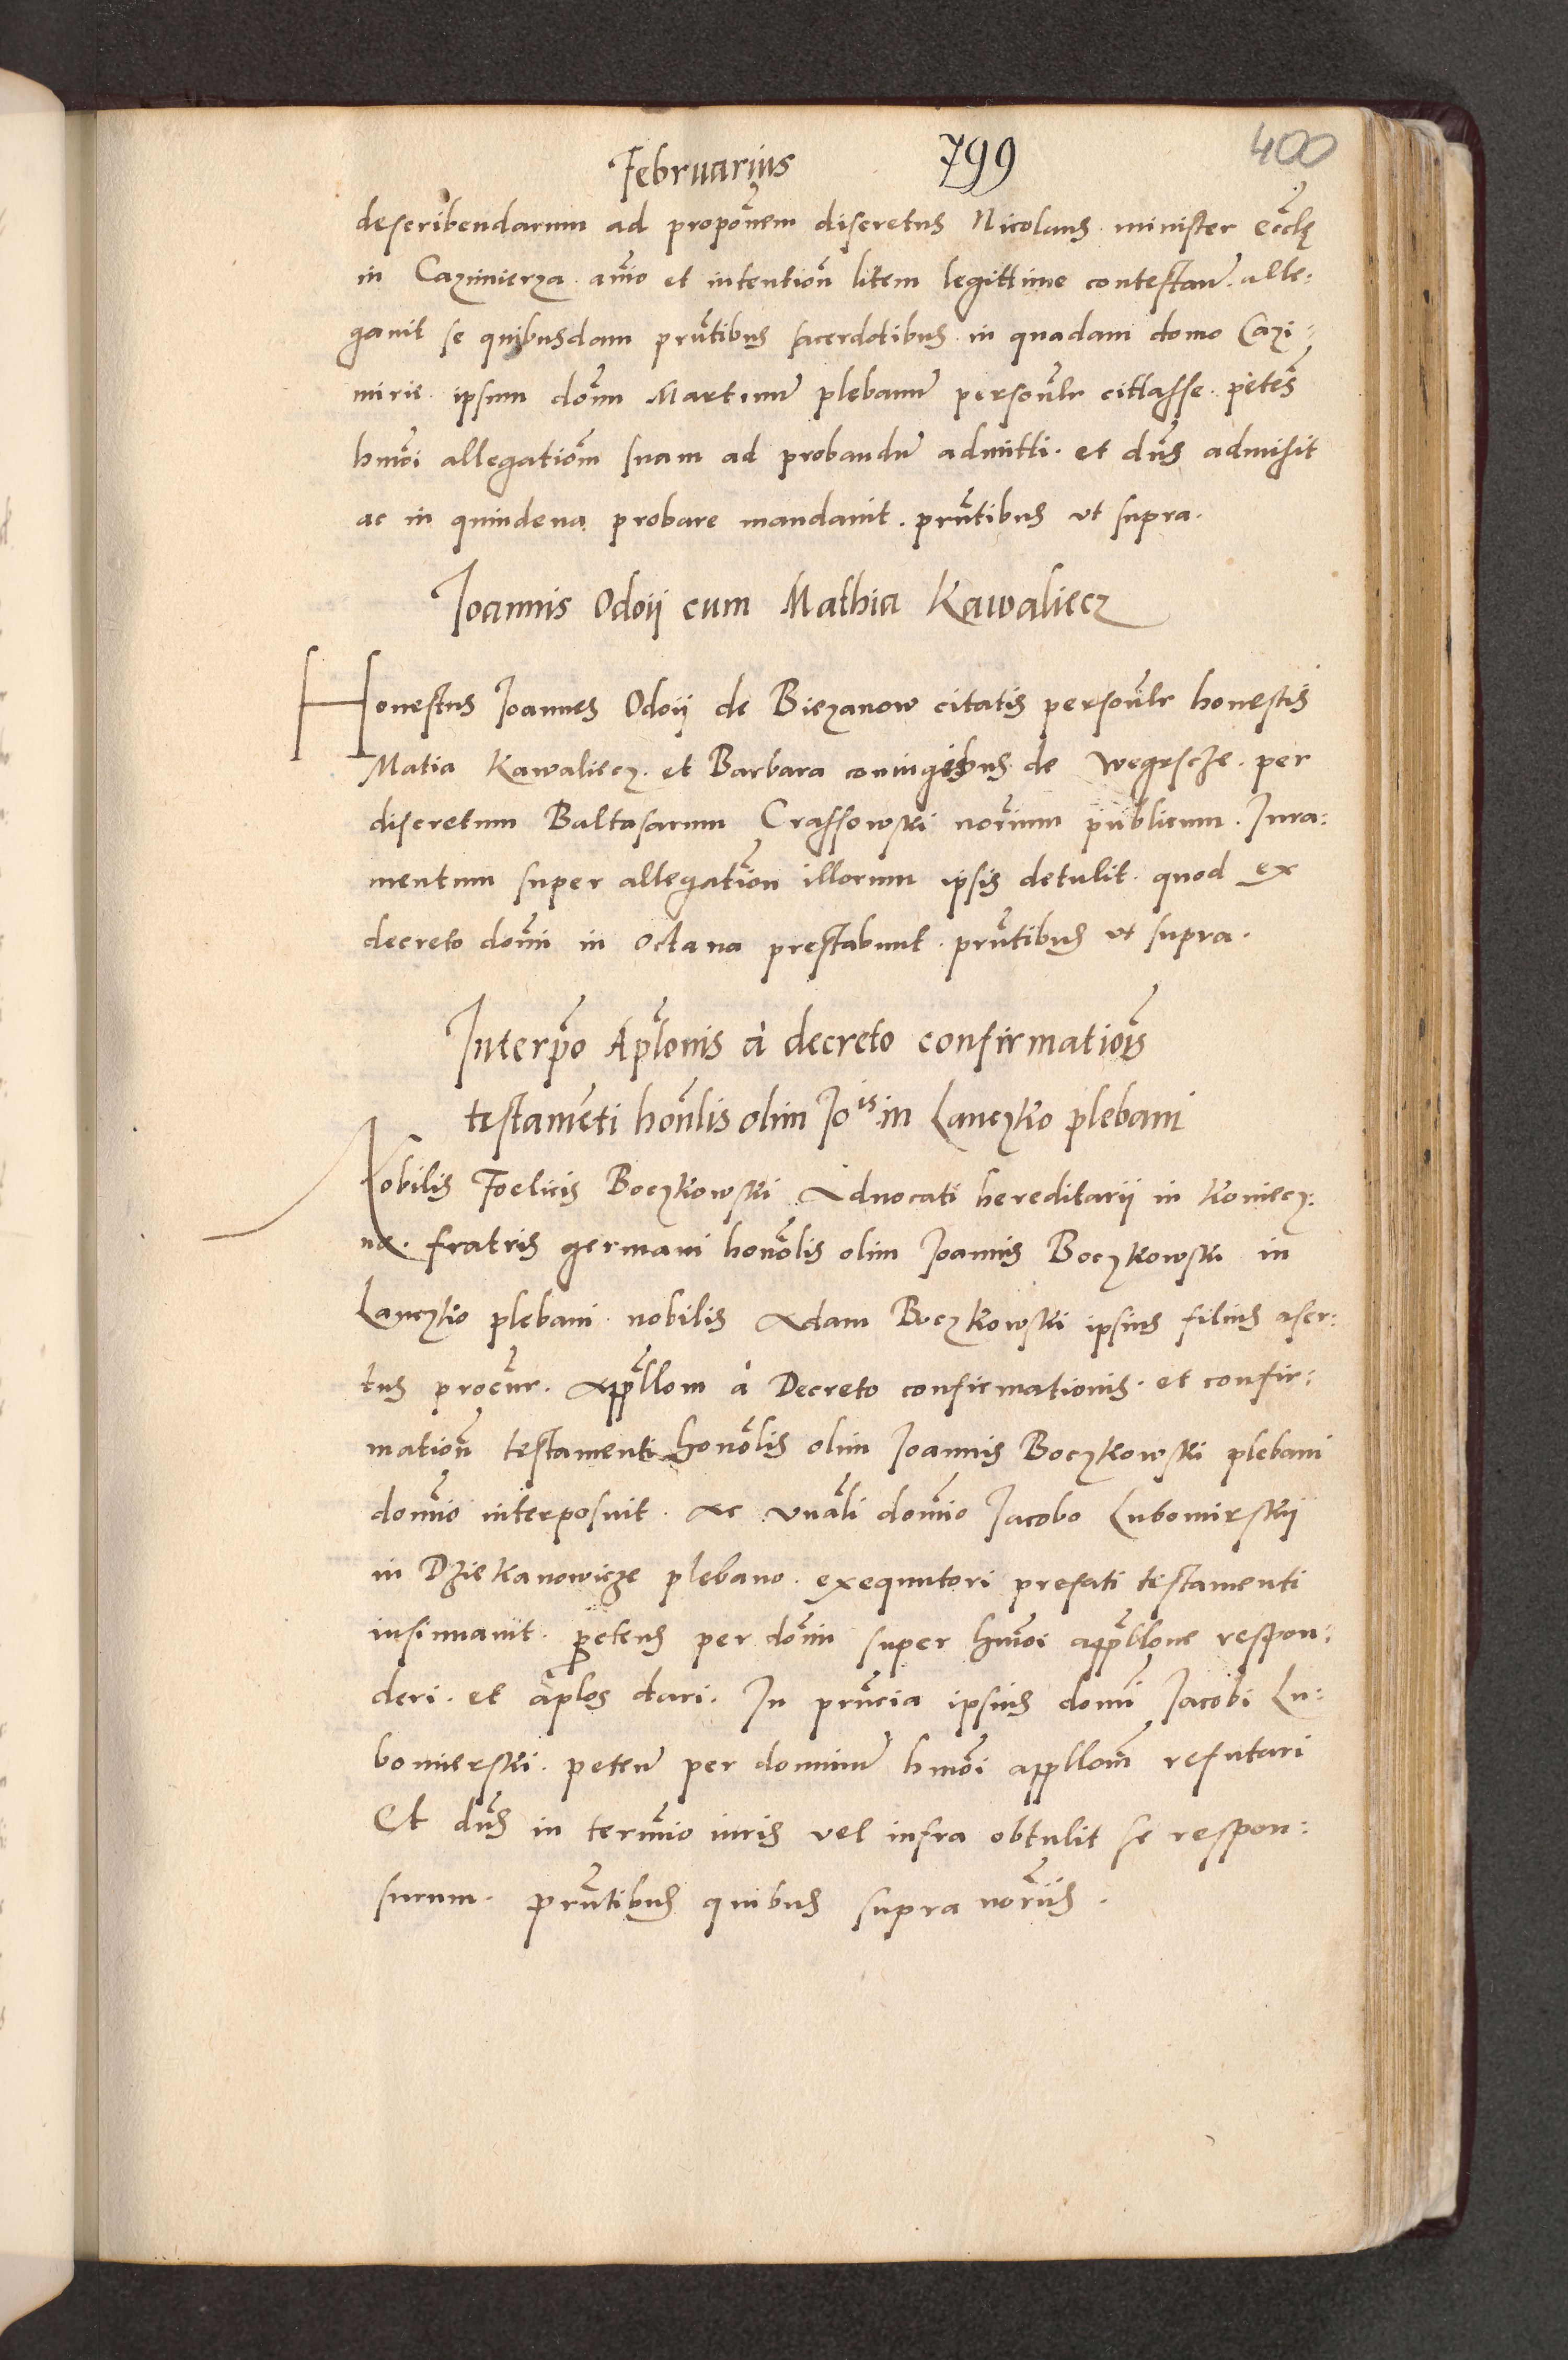 Februarius 799 400
describendarum ad propōnem discretus Nicolaus minister eccłę
in Cazimierza. aīo et intentioñ litem legittime contestań. alle:
gavit se quibusdam pñtibus sacerdotibus in quadam domo Cazi:
mirie. ipsum dom̄ Martinū plebanū persoñlr cittasse. peteñs
hmōi allegatiōm suam ad probandū admitti. et dñs admisit
ac in quindena probare mandavit. pñtibus ut supra.
Joannis Odoij cum Mathia Kawaliecz
Honestus Joannes Odoij de Biezanow citatis persoñlr honestis
Matia Kawaliecz. et Barbara coniugibus de Wegrscze. per
discretum Baltasarum Crassowski noriūm publicum. Jura:
mentum super allegatioñ illorum ipsis detulit. quod ex
decreto domī in octava prestabunt. pñtibus ut supra.
Interpō Apłonis à decreto confirmatioīs
testamēti hoñlis olim Joīs in Lanczko plebani
Nobilis Foelicis Boczkowski Advocati hereditarii in Koniecz:
na. fratris germani honōlis olim Joannis Boczkowski in
Lanczko plebani nobilis Adam Boczkowski ipsius filius aser:
tus procur̄. Appłlom à Decreto confirmationis. et confir:
matioñ testamenti honōlis olim Joannis Boczkowski plebani
domīo interposuit. Ac vnāli domīo Jacobo Lubomirskij
in Dziekanowicze plebano. exequutori prefati testamenti
insinuavit. petens per domī super hmōi appłlone respon:
deri. et ap̄los dari. In pñcia ipsius domī Jacobi Lu:
bomierski. peteñ per dominū hmōi appłlom̄ refutari
Et dñs in termīo iuris vel infra obtulit se respon:
surum. pñtibus quibus supra norīis.